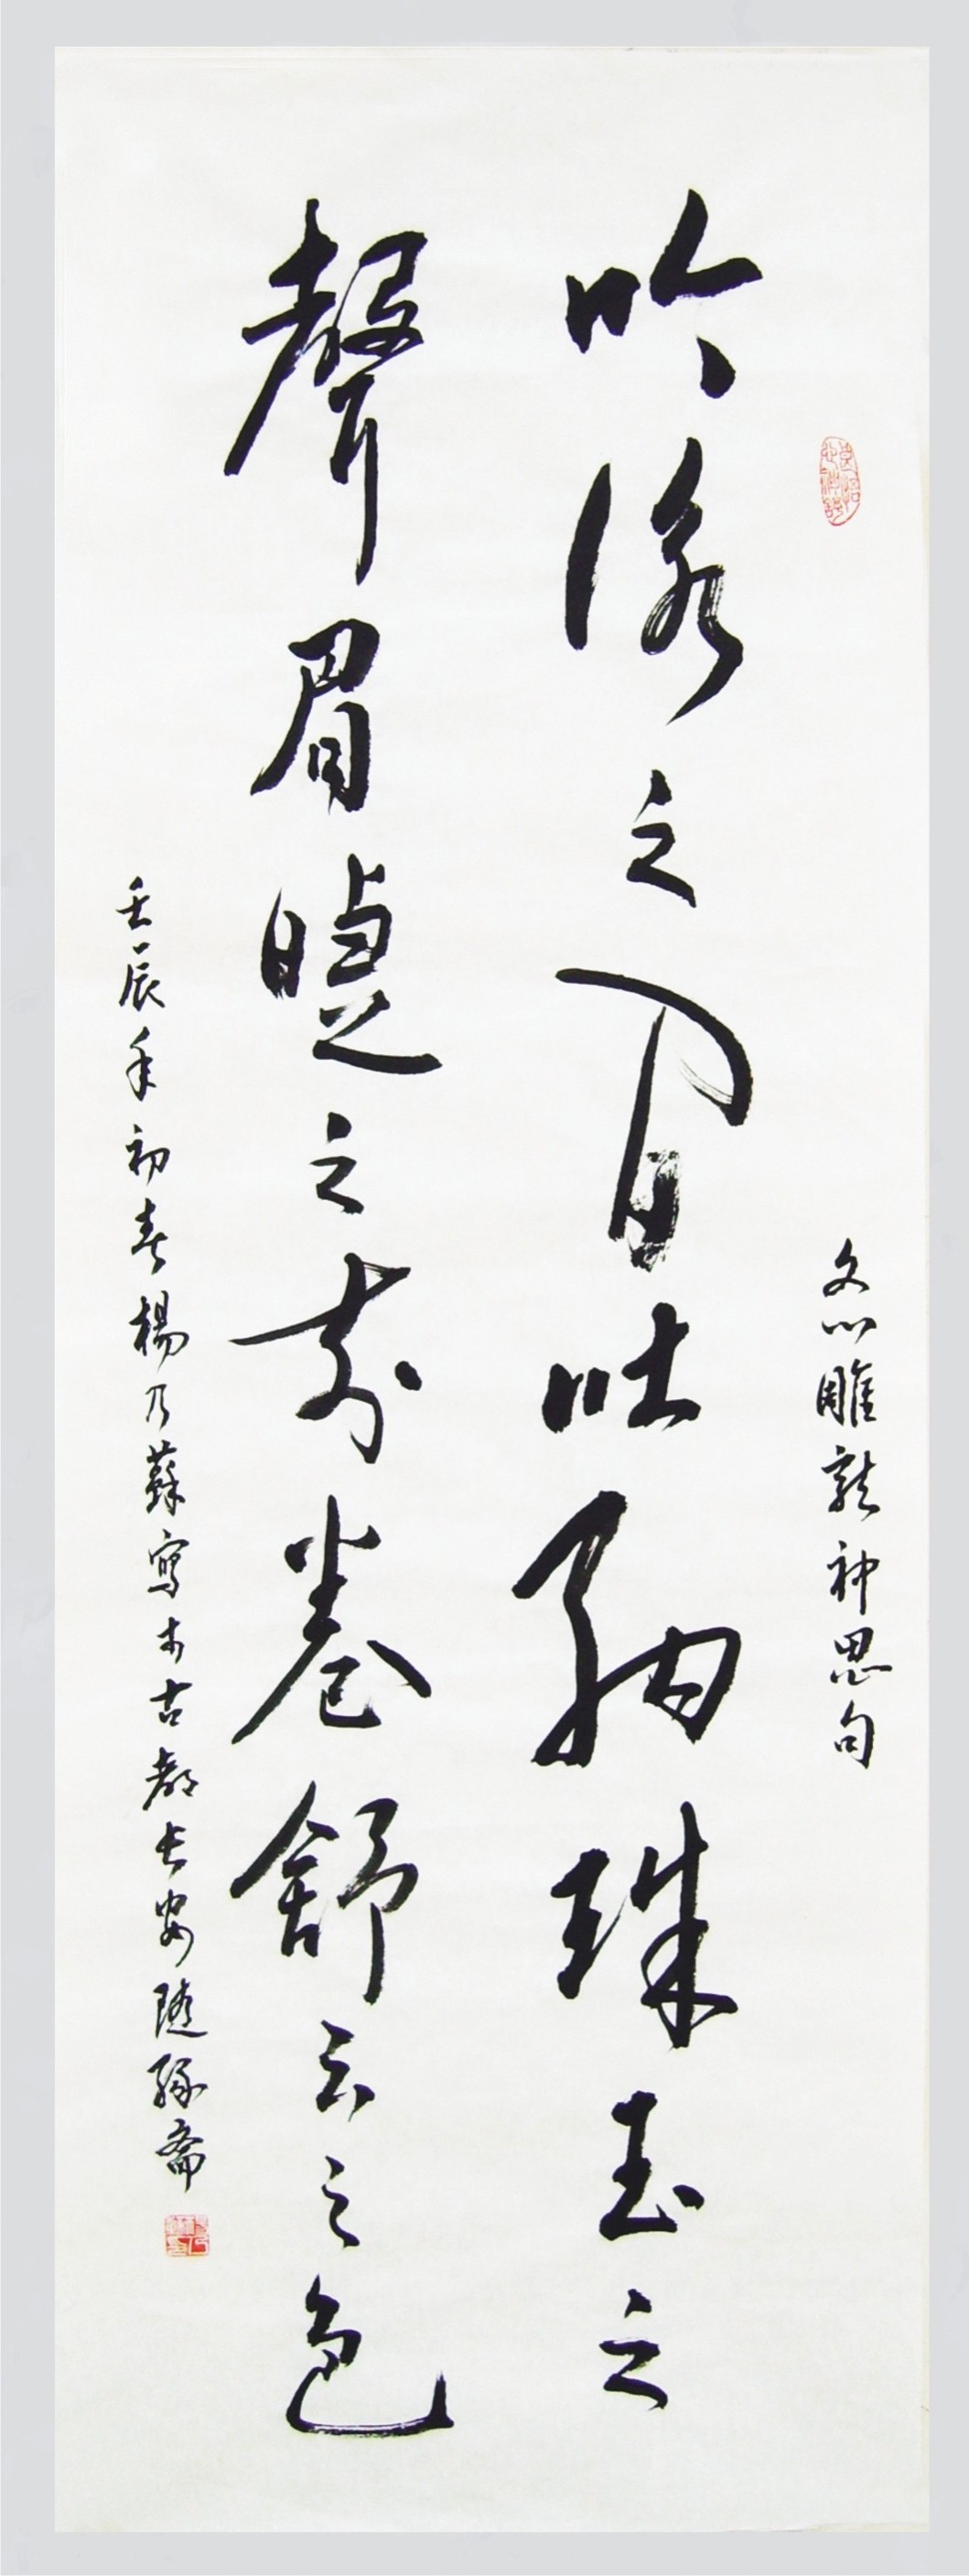 文心雕龍神思句
吟詠之間吐納珠玉之
聲眉睫之前卷舒云之色
壬辰年初春楊乃蘇寫於古都長安隨緣齋